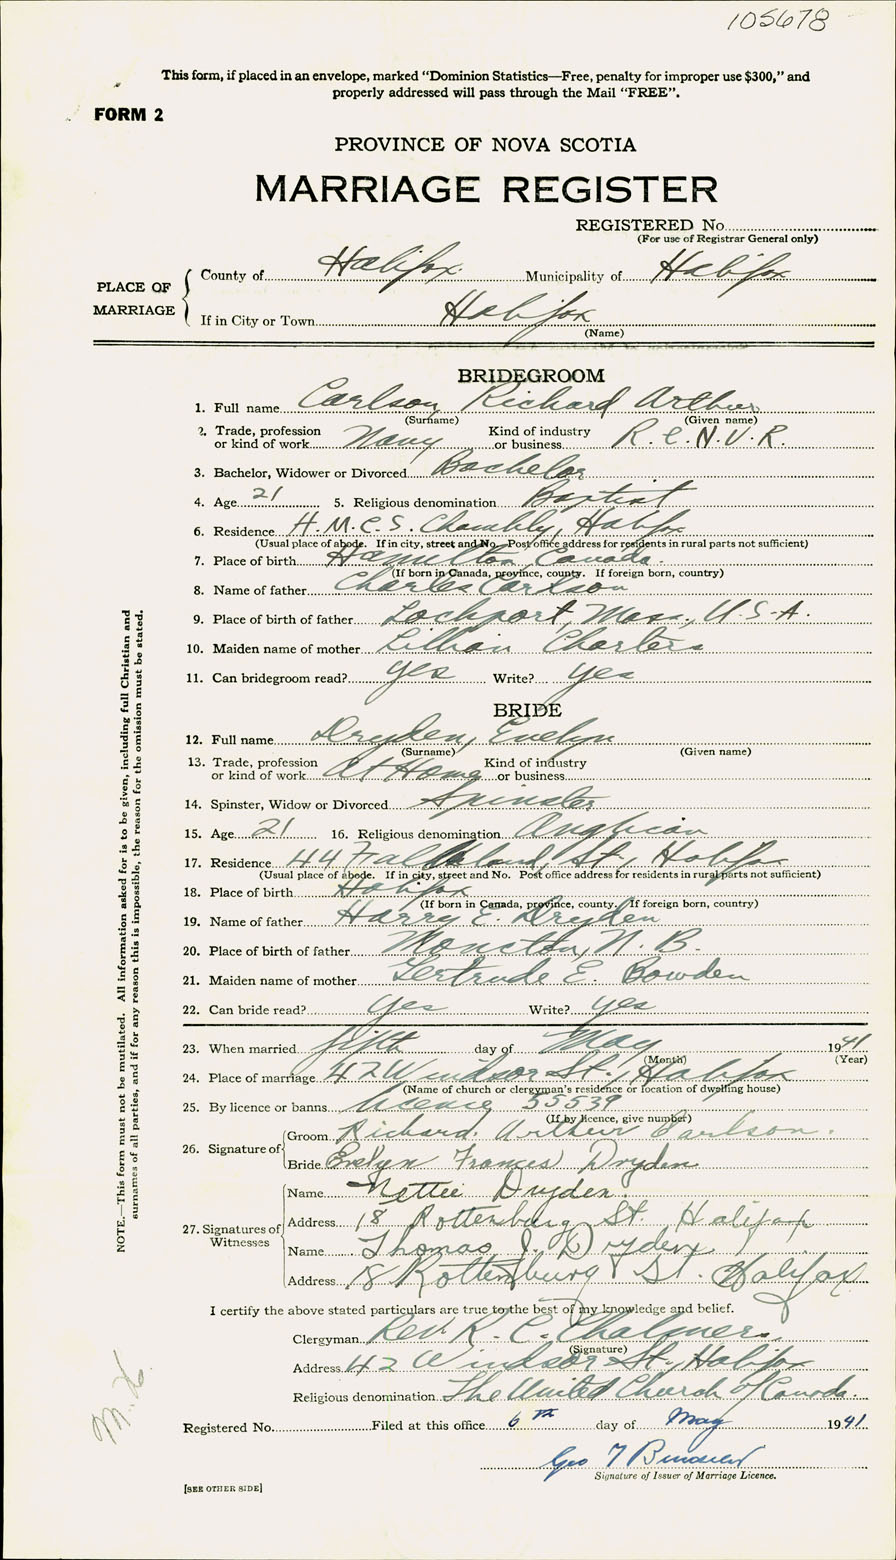 105678
This form, if placed in an envelope, marked "Dominion Statistics—Free, penalty for improper use $300," and
properly addressed will pass through the Mail "FREE".
FORM 2
PROVINCE OF NOVA SCOTIA
MARRIAGE REGISTER
REGISTERED No.
(For use of Registrar General only)
PLACE OF MARRIAGE
County of Halifax Municipality of Halifax
If in City or Town Halifax
(Name)
BRIDEGROOM
1. Full name Carlson, Richard Arthur
(Surname) (Given name)
2. Trade, profession or kind of work Navy Kind of industry or business R.C.N.V.R.
3. Bachelor, Widower or Divorced Bachelor
4. Age 21 5. Religious denomination Baptist
6. Residence H.M.C.S. Chambly, Halifax
(Usual place of abode. If in city, street and No. Post office address for residents in rural parts not sufficient)
7. Place of birth Hamilton, Canada.
(If born in Canada, province, county. If foreign born, country)
8. Name of father Charles Carlson
9. Place of birth of father Lockport, Mass., U.S.A.
10. Maiden name of mother Lillian Charters
11. Can bridegroom read? yes Write? yes
BRIDE
12. Full name Dryden, Evelyn
(Surname) (Given name)
13. Trade, profession or kind of work At Home Kind of industry or business
14. Spinster, Widow or Divorced Spinster
15. Age 21 16. Religious denomination Anglican
17. Residence 44 Falkland St., Halifax
(Usual place of abode. If in city, street and No. Post office address for residents in rural parts not sufficient)
18. Place of birth Halifax
(If born in Canada, province, county. If foreign born, country)
19. Name of father Harry E. Dryden
20. Place of birth of father Moncton, N.B.
21. Maiden name of mother Gertrude E. Bowden
22. Can bride read? yes Write? yes
23. When married fifth day of May 1941
(Month) (Year)
24. Place of marriage 42 Windsor St., Halifax
(Name of church or clergyman's residence or location of dwelling house)
25. By licence or banns licence 55539
(If by licence, give number)
26. Signature of
Groom Richard Arthur Carlson.
Bride Evelyn Frances Dryden
27. Signatures of Witnesses
Name Nettie Dryden.
Address 18 Rottenburg St. Halifax
Name Thomas J. Dryden
Address 18 Rottenburg St. Halifax
I certify the above stated particulars are true to the best of my knowledge and belief.
Clergyman Rev. R. C. Chalmers.
(Signature)
Address 42 Windsor St., Halifax
Religious denomination The United Church of Canada.
Registered No. Filed at this office 6th day of May 1941
Geo
Signature of Issuer of Marriage Licence.
[SEE OTHER SIDE]
NOTE.—This form must not be mutilated. All information asked for is to be given, including full Christian and
surnames of all parties, and if for any reason this is impossible, the reason for the omission must be stated.